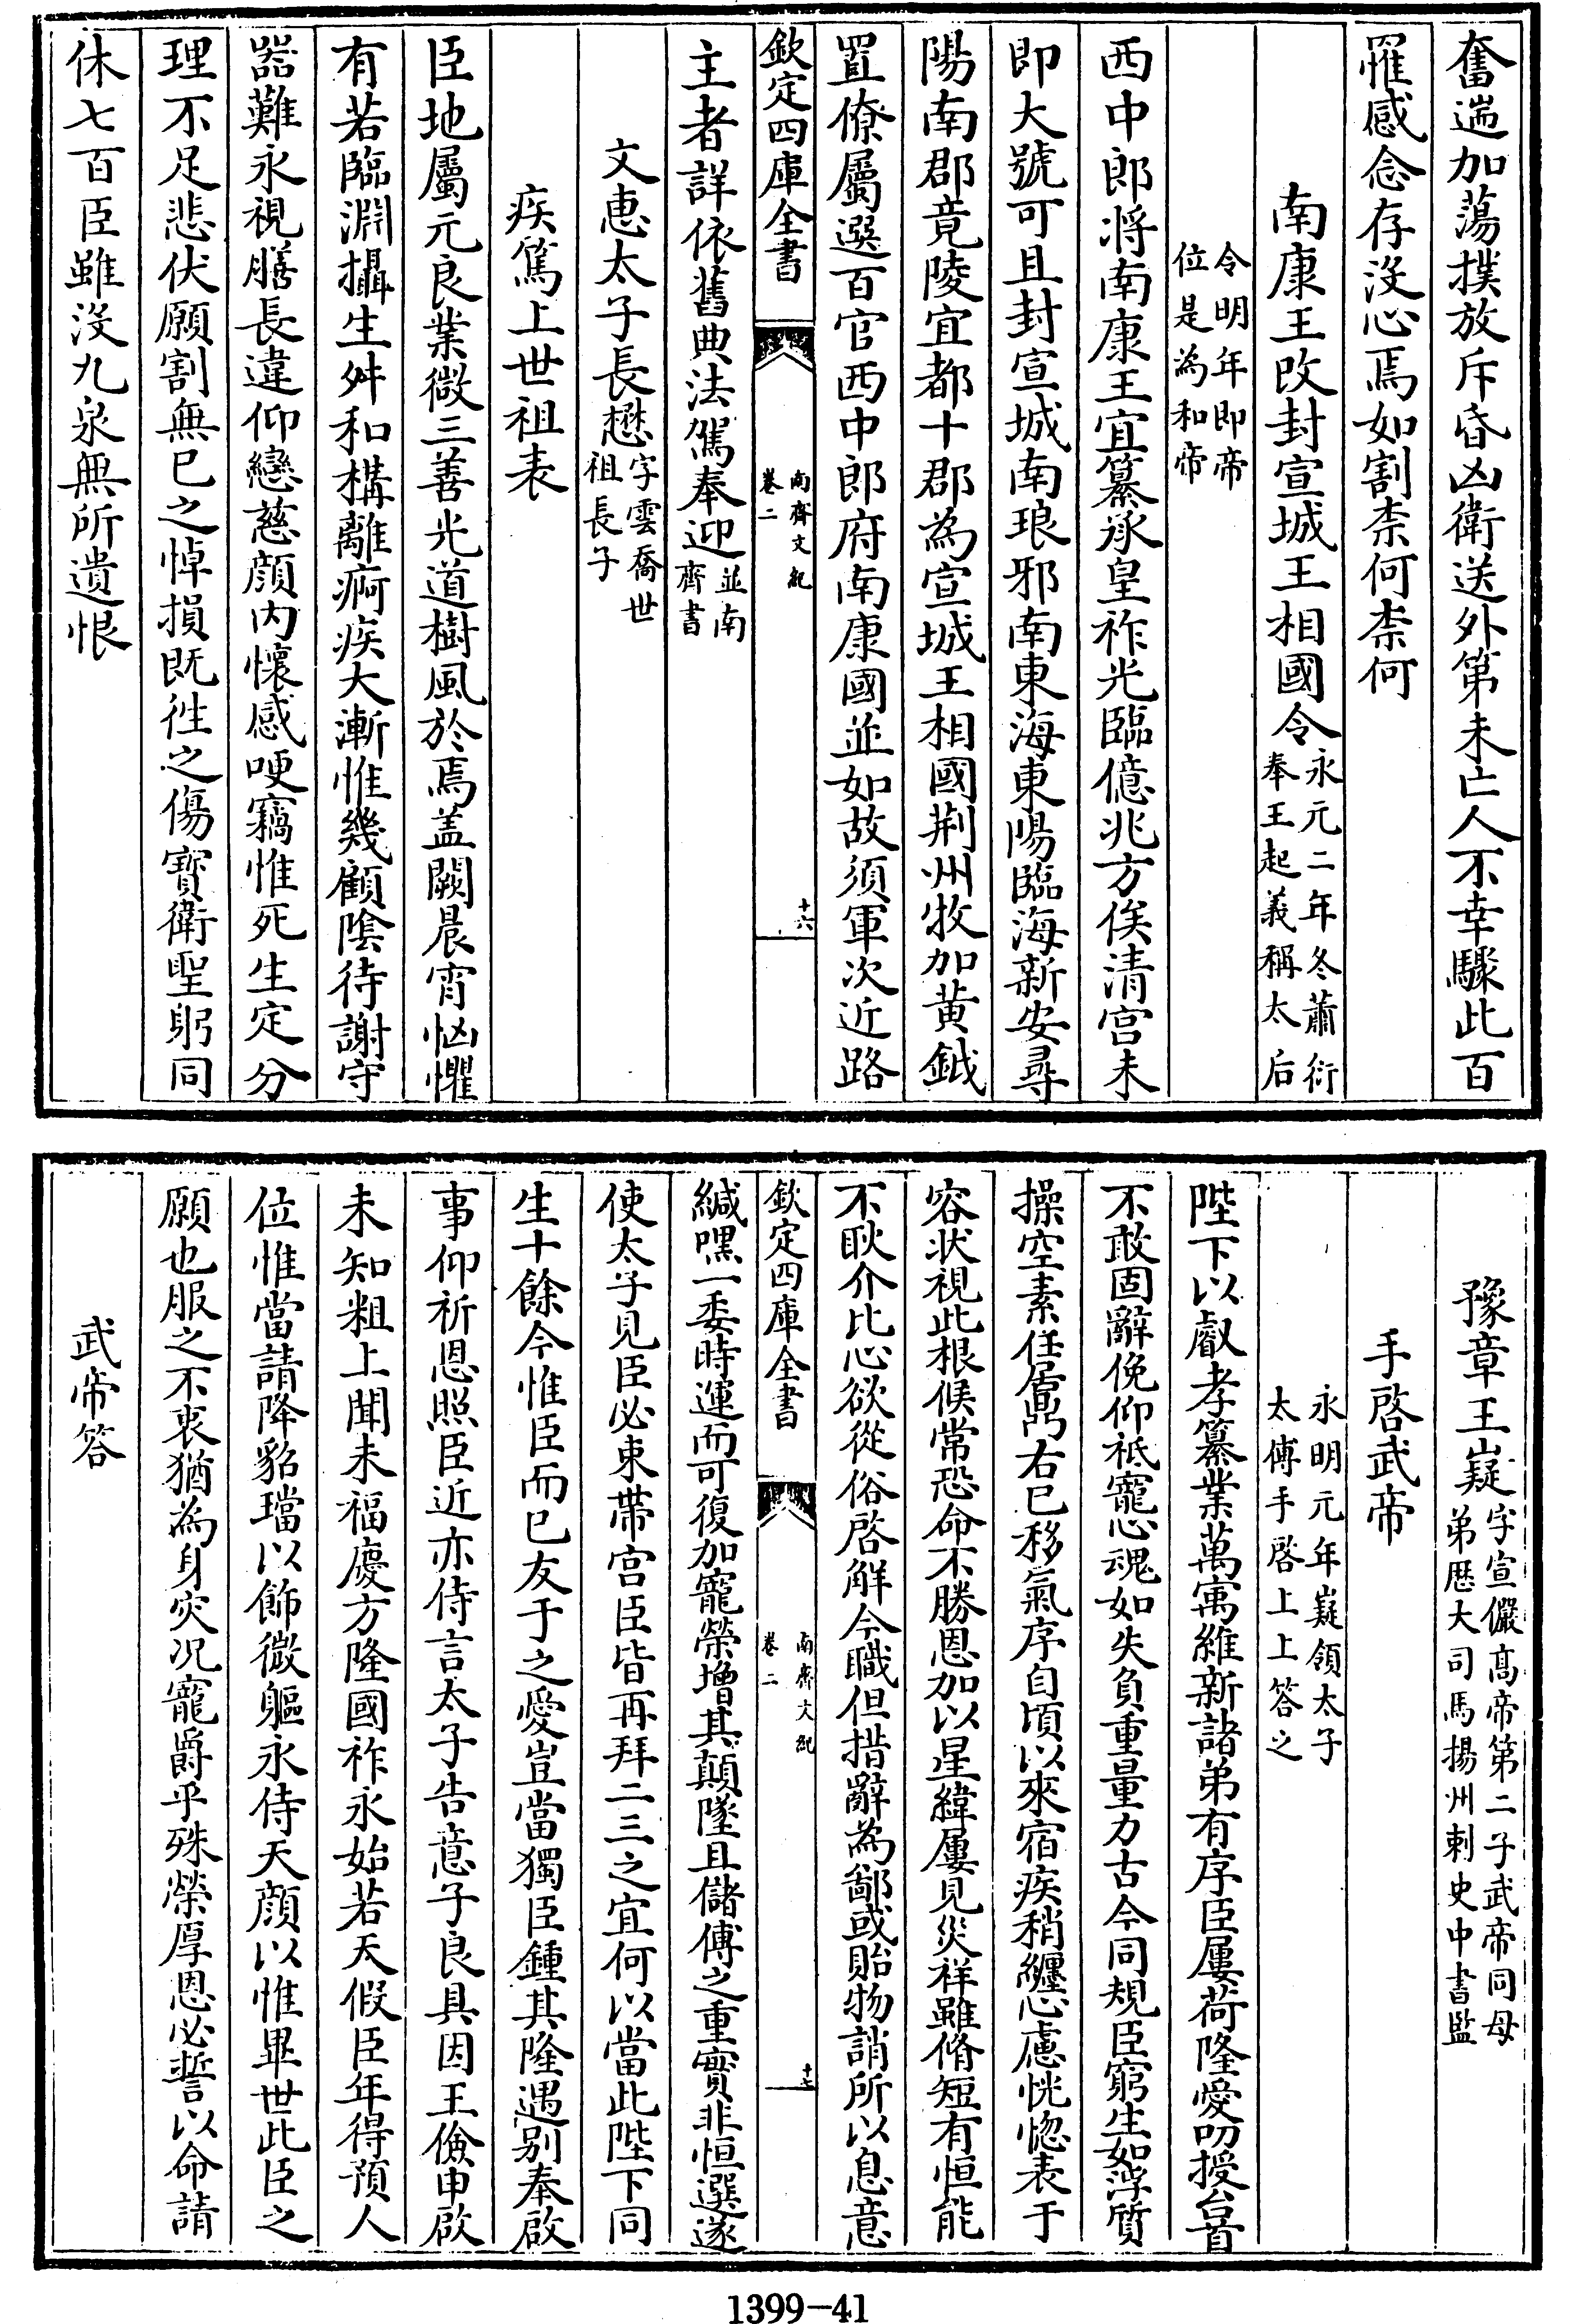 奮遄加蕩撲放斥昏凶衛送外第未亡人不幸驟此百
罹感念存没心焉如割柰何柰何
南康王改封宣城王相國令永元二年冬蕭衍奉王起義稱太后
令明年即帝位是為和帝
西中郎将南康王宜纂承皇祚光臨億兆方俟清宫未
即大號可且封宣城南琅邪南東海東陽臨海新安尋
陽南郡竟陵宜都十郡為宣城王相國荆州牧加黄鉞
置僚屬選百官西中郎府南康國並如故須軍次近路
欽定四庫全書 南齊文紀 卷二 十六
主者詳依舊典法駕奉迎並南齊書
文惠太子長懋字雲喬世祖長子
疾篤上世祖表
臣地屬元良業微三善光道樹風於焉盖闕晨宵忷懼
有若臨淵攝生舛和構離痾疾大漸惟幾顧陰待謝守
器難永視膳長違仰戀慈顔内懷感哽竊惟死生定分
理不足悲伏願割無已之悼損既徃之傷寳衛聖躬同
休七百臣雖没九泉無所遺恨
豫章王嶷字宣儼髙帝第二子武帝同母弟歴大司馬揚州刺史中書監
手啓武帝
永明元年嶷領太子太傅手啓上上答之
陛下以叡孝纂業萬㝢維新諸弟有序臣屢荷隆愛叨授台首
不敢固辭俛仰祗寵心魂如失負重量力古今同規臣窮生如浮質
操空素任居鼎右已移氣序自頃以來宿疾稍纏心慮恍惚表于
容状視此根候常恐命不勝恩加以星緯屢見災祥雖脩短有恒能
不耿介比心欲從俗啓解今職但措辭為鄙或貽物誚所以息意
欽定四庫全書 南齊文紀 卷二 十七
緘嘿一委時運而可復加寵榮增其顛墜且儲傅之重實非恒選遂
使太子見臣必束帶宫臣皆再拜二三之宜何以當此陛下同
生十餘今惟臣而已友于之愛豈當獨臣鍾其隆遇别奉啟
事仰祈恩照臣近亦侍言太子告意子良具因王儉申啟
未知粗上聞未福慶方隆國祚永始若天假臣年得預人
位惟當請降貂璫以飾微軀永侍天顔以惟畢世此臣之
願也服之不衷猶為身灾况寵爵乎殊榮厚恩必誓以命請
武帝答
1399-41